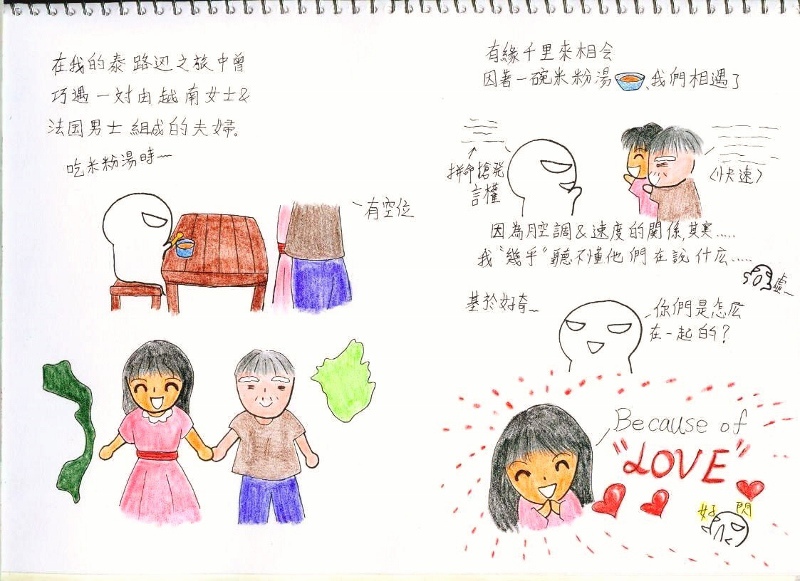 在我的泰路边之旅中曾
巧遇一对由越南女士&
法国男士組成的夫婦。
吃米粉湯時~
有空位
有緣千里來相会
因著一碗米粉湯、我們相遇了
拼命搶發
言權
<快速>
因為腔調&速度的關係,其实.....
我"幾乎"聽不懂他們在説什庅.....
虛~
基於好奇~
你們是怎庅
在一起的?
Because of
"LOVE"
好閃